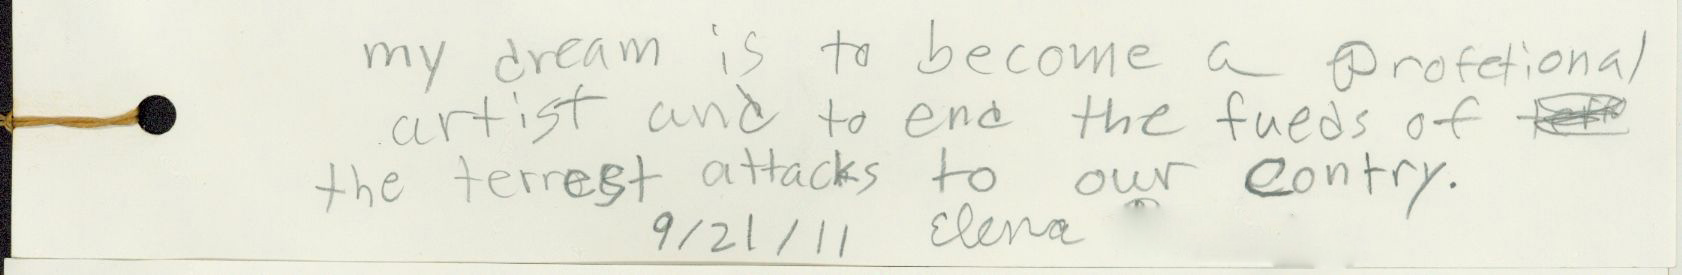 my dream is to become a profetional
artist and to end the fueds of
the terrest attacks to our contry.
9/21/11 Elena